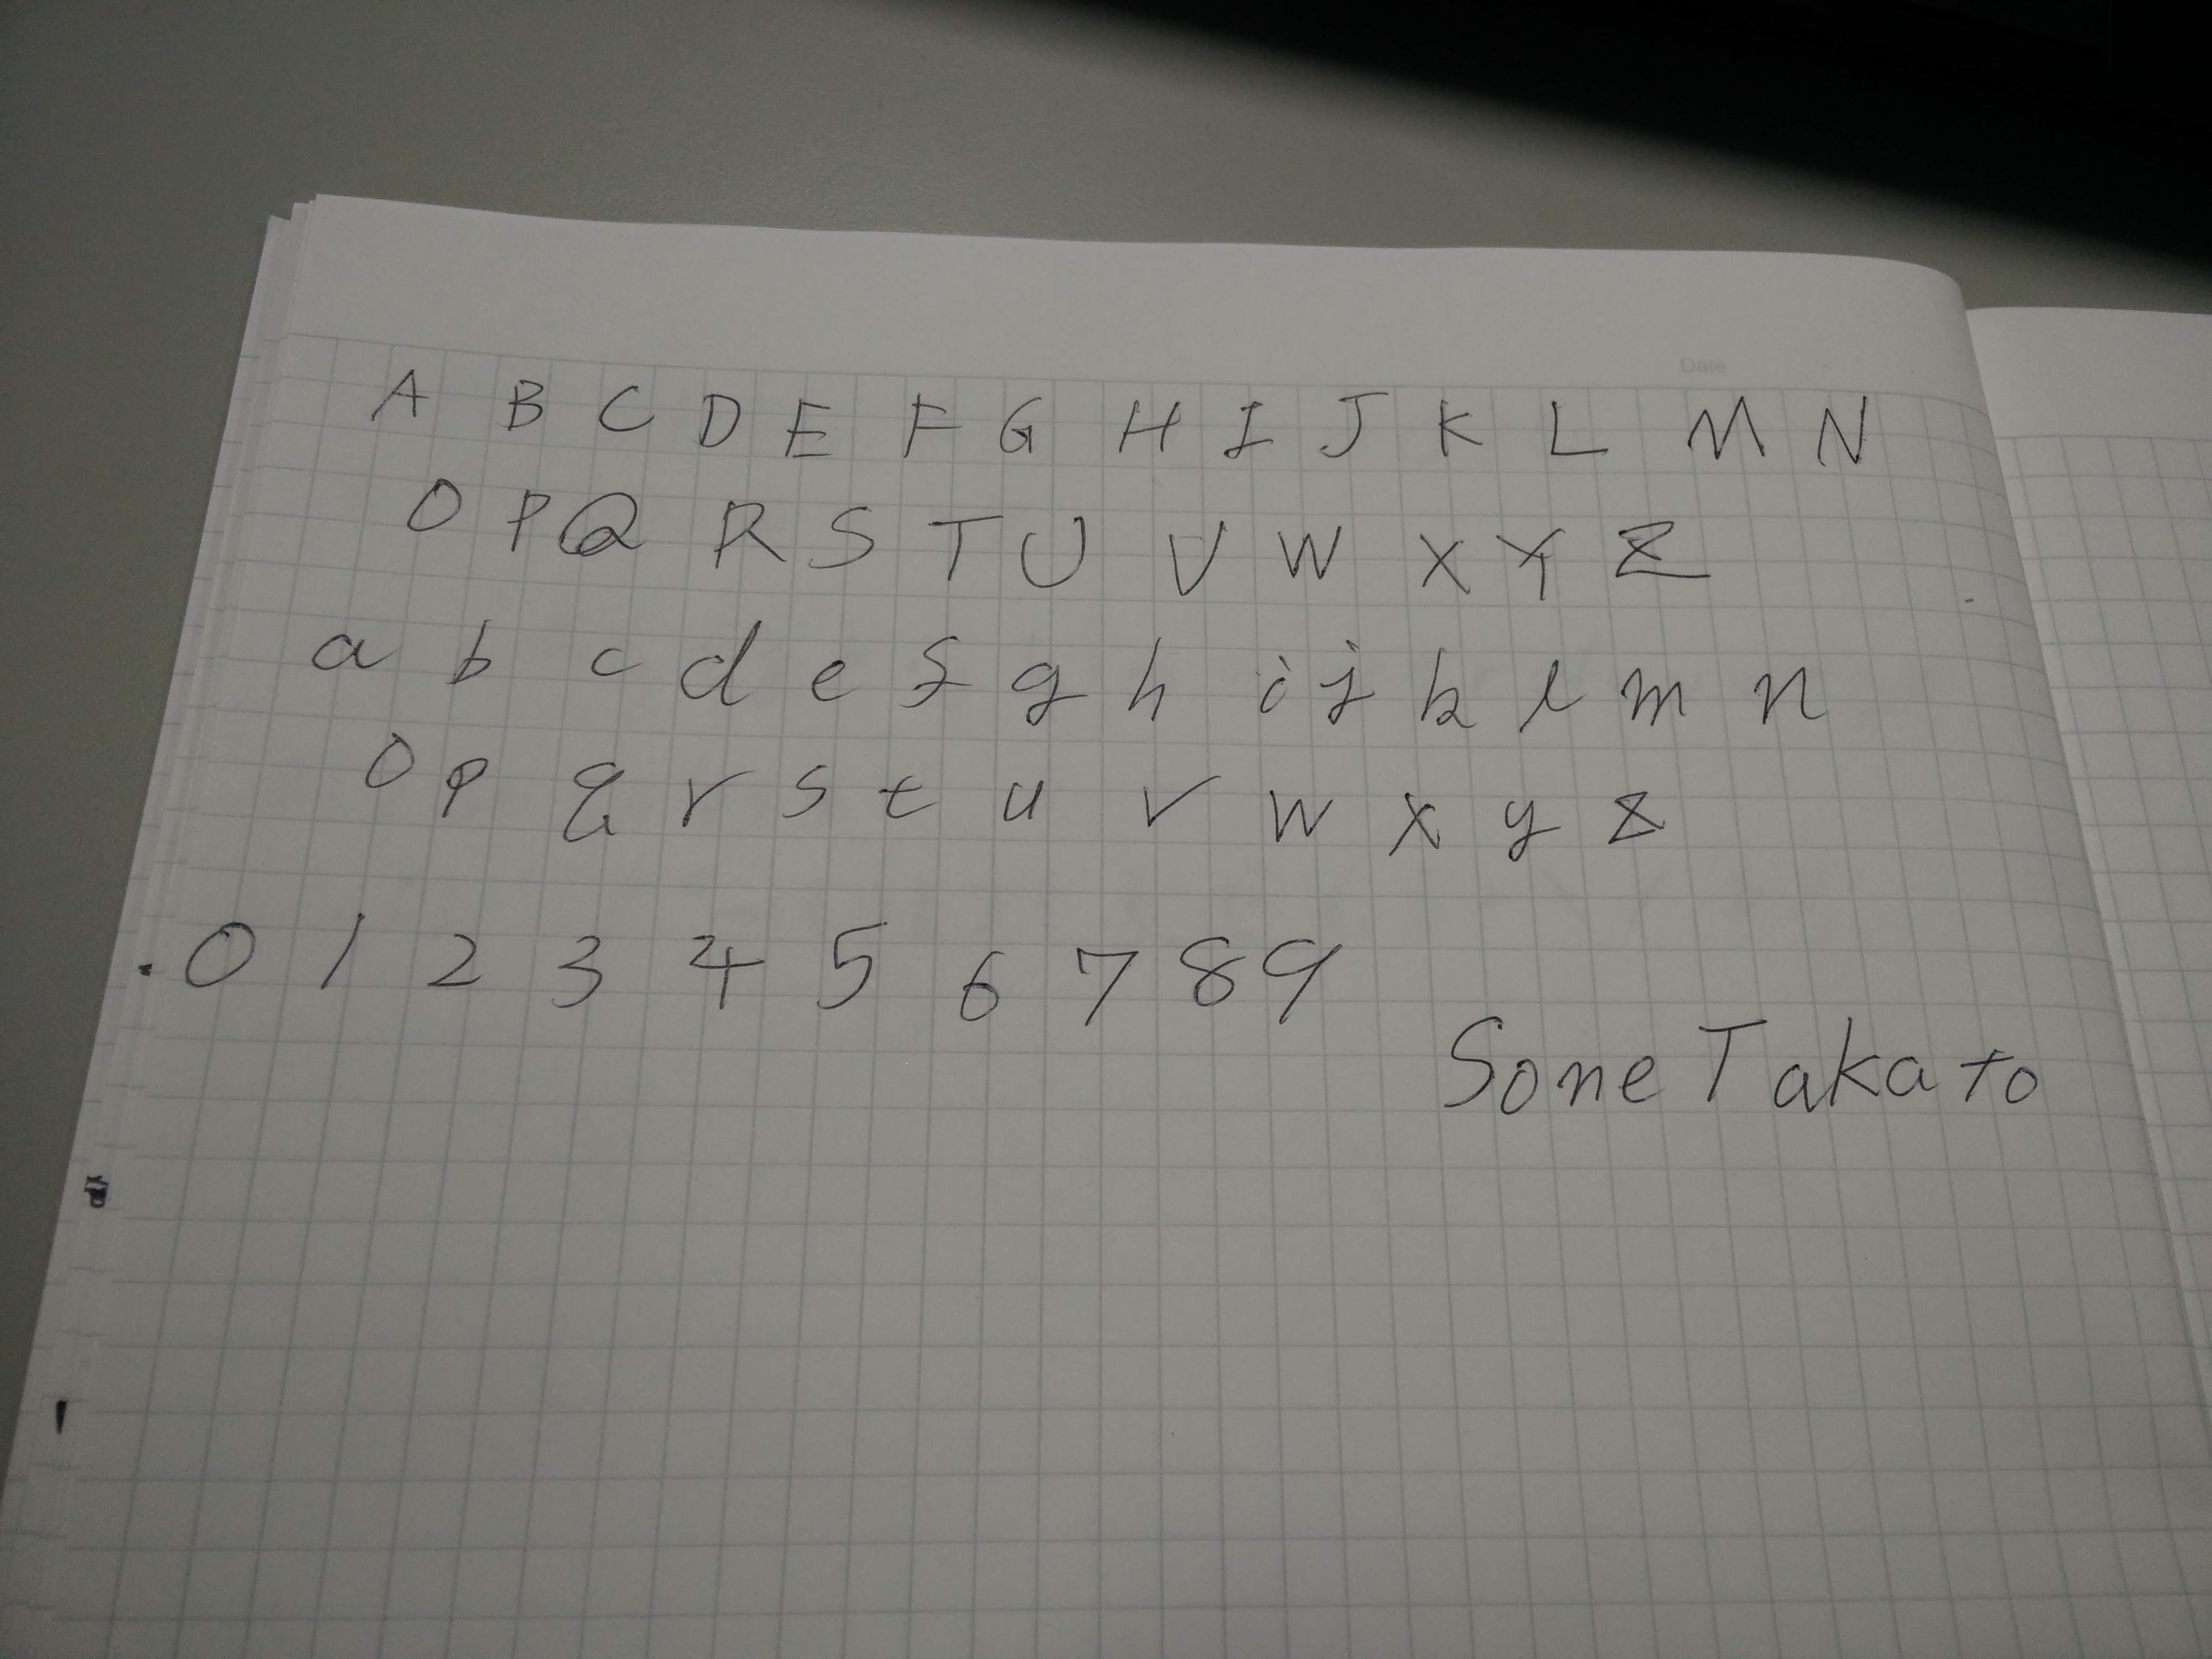 Date
A B C D E F G H I J K L M N
O P Q R S T U V W X Y Z
a b c d e f g h i j k l m n
o p q r s t u v w x y z
0 1 2 3 4 5 6 7 8 9
Sone Takato